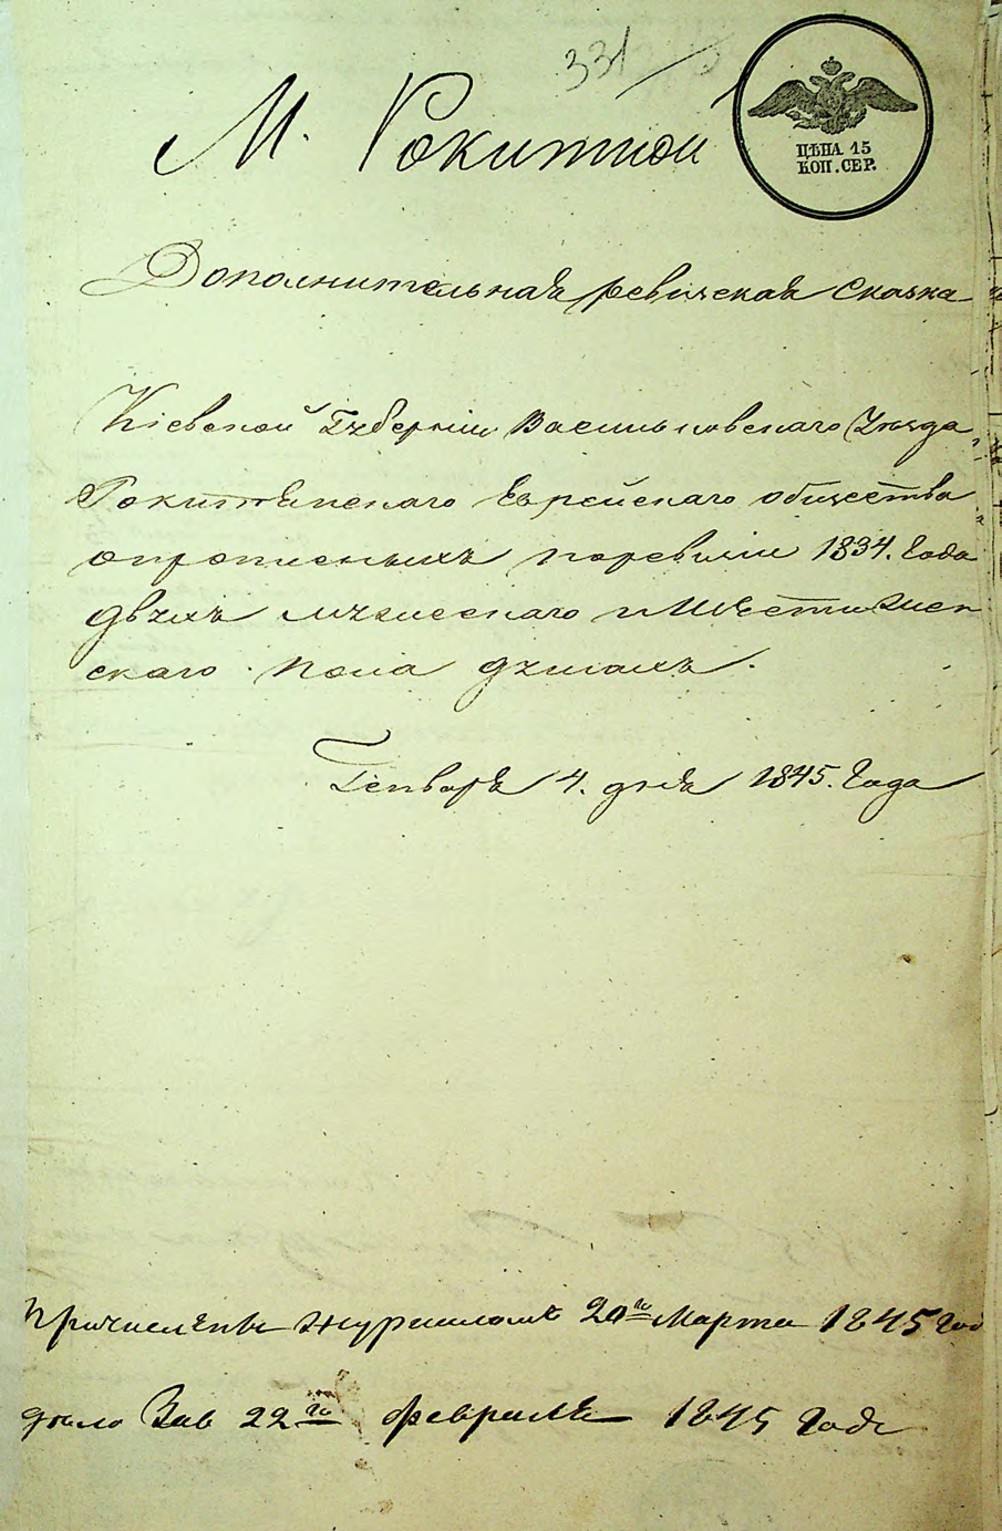 331
М. Рокитной
ЦѢНА 15
КОП. СЕР.
Дополнительная ревизская сказка
Кіевской Губерніи Васильковскаго Уѣзда
Рокитянскаго Еврейскаго общества
опрописныхъ поревизіи 1834. Года
двухъ мужескаго и шести женс
скаго пола душахъ.
Генваря 4. дня 1845. Года
Причислены журналомъ 20го Марта 1845 год
дѣло 22го февраля 1845 года